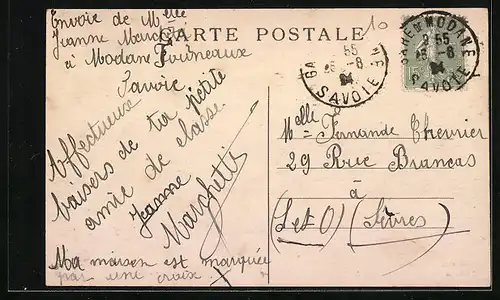 Envoie de Melle
Jeanne Marchetti
à Modane Fourneaux
Savoie
CARTE POSTALE
Affectueux
baisers de ta petite
amie de classe.
Jeanne
Marchetti
Ma maison est marquée
par une croix. X
10
55
-8
SAVOIE
GARE DE MODANE
55
-8
SAVOIE
Melle Fernande Chevrier
29 Rue Brancas
à
(S et O) (Sèvres)